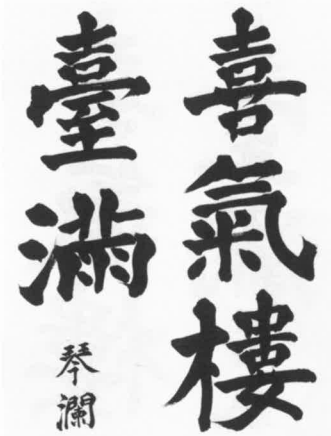 喜氣樓
臺滿
琴瀾